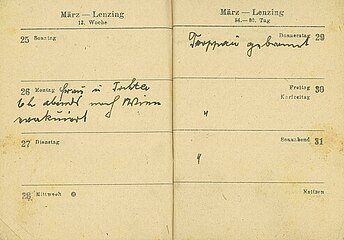 März — Lenzing
13. Woche
25 Sonntag
26 Montag Frau u Tochter
6h abends nach Wien
evakuiert
27 Dienstag
28 Mittwoch
März — Lenzing
84.—90. Tag
Donnerstag 29
Troppau gebrannt
Freitag 30
Karfreitag
"
Sonnabend 31
"
Notizen